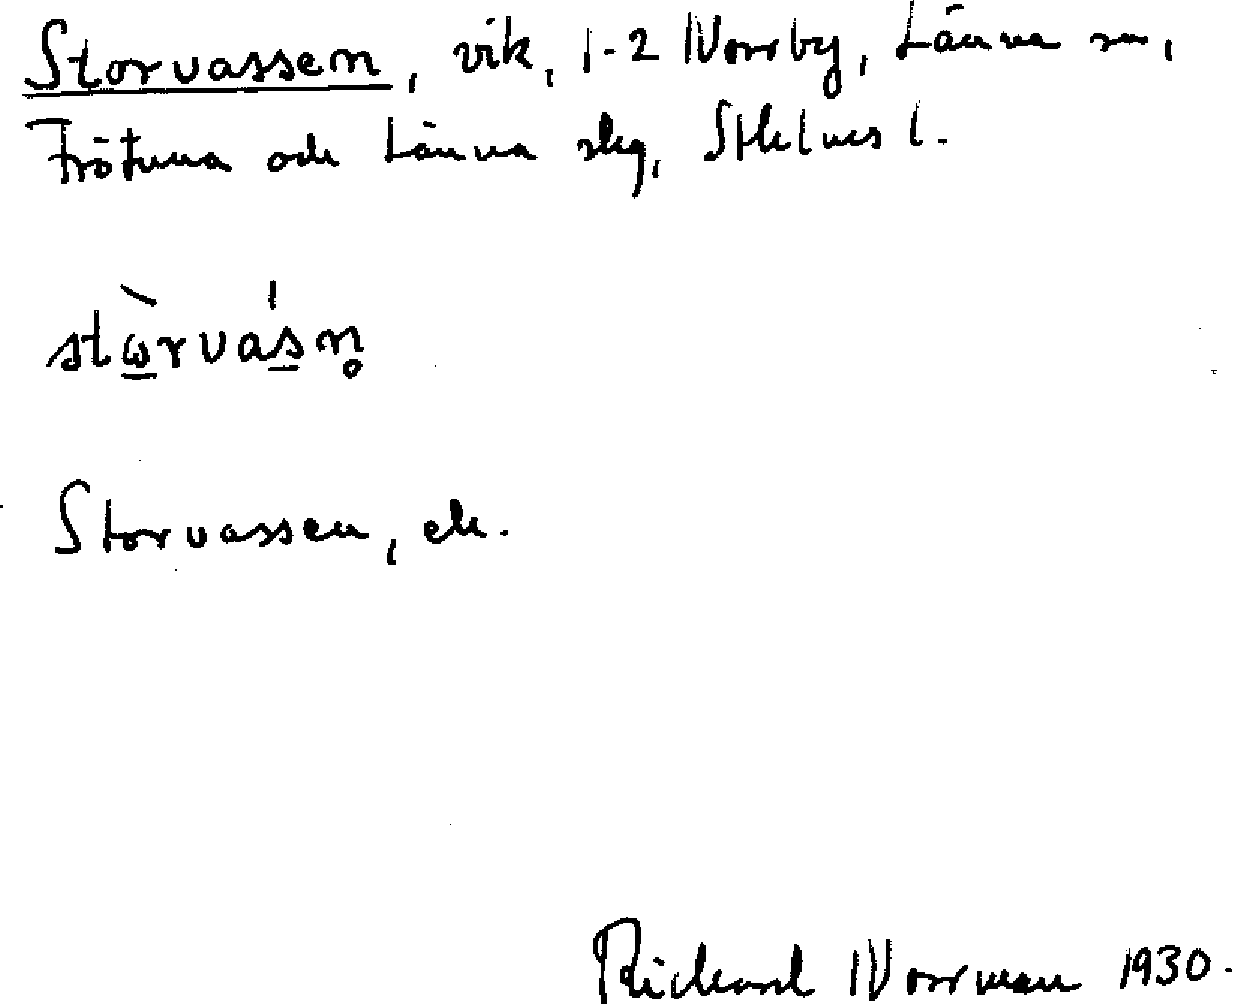 Storvassen, vik, 1-2 Norrby, Länna sn,
Frötuna och Länna skg, Sthlms l.
stὼ̲rvás̲n̥
Storvassen, ek.
Richard Norrman 1930.